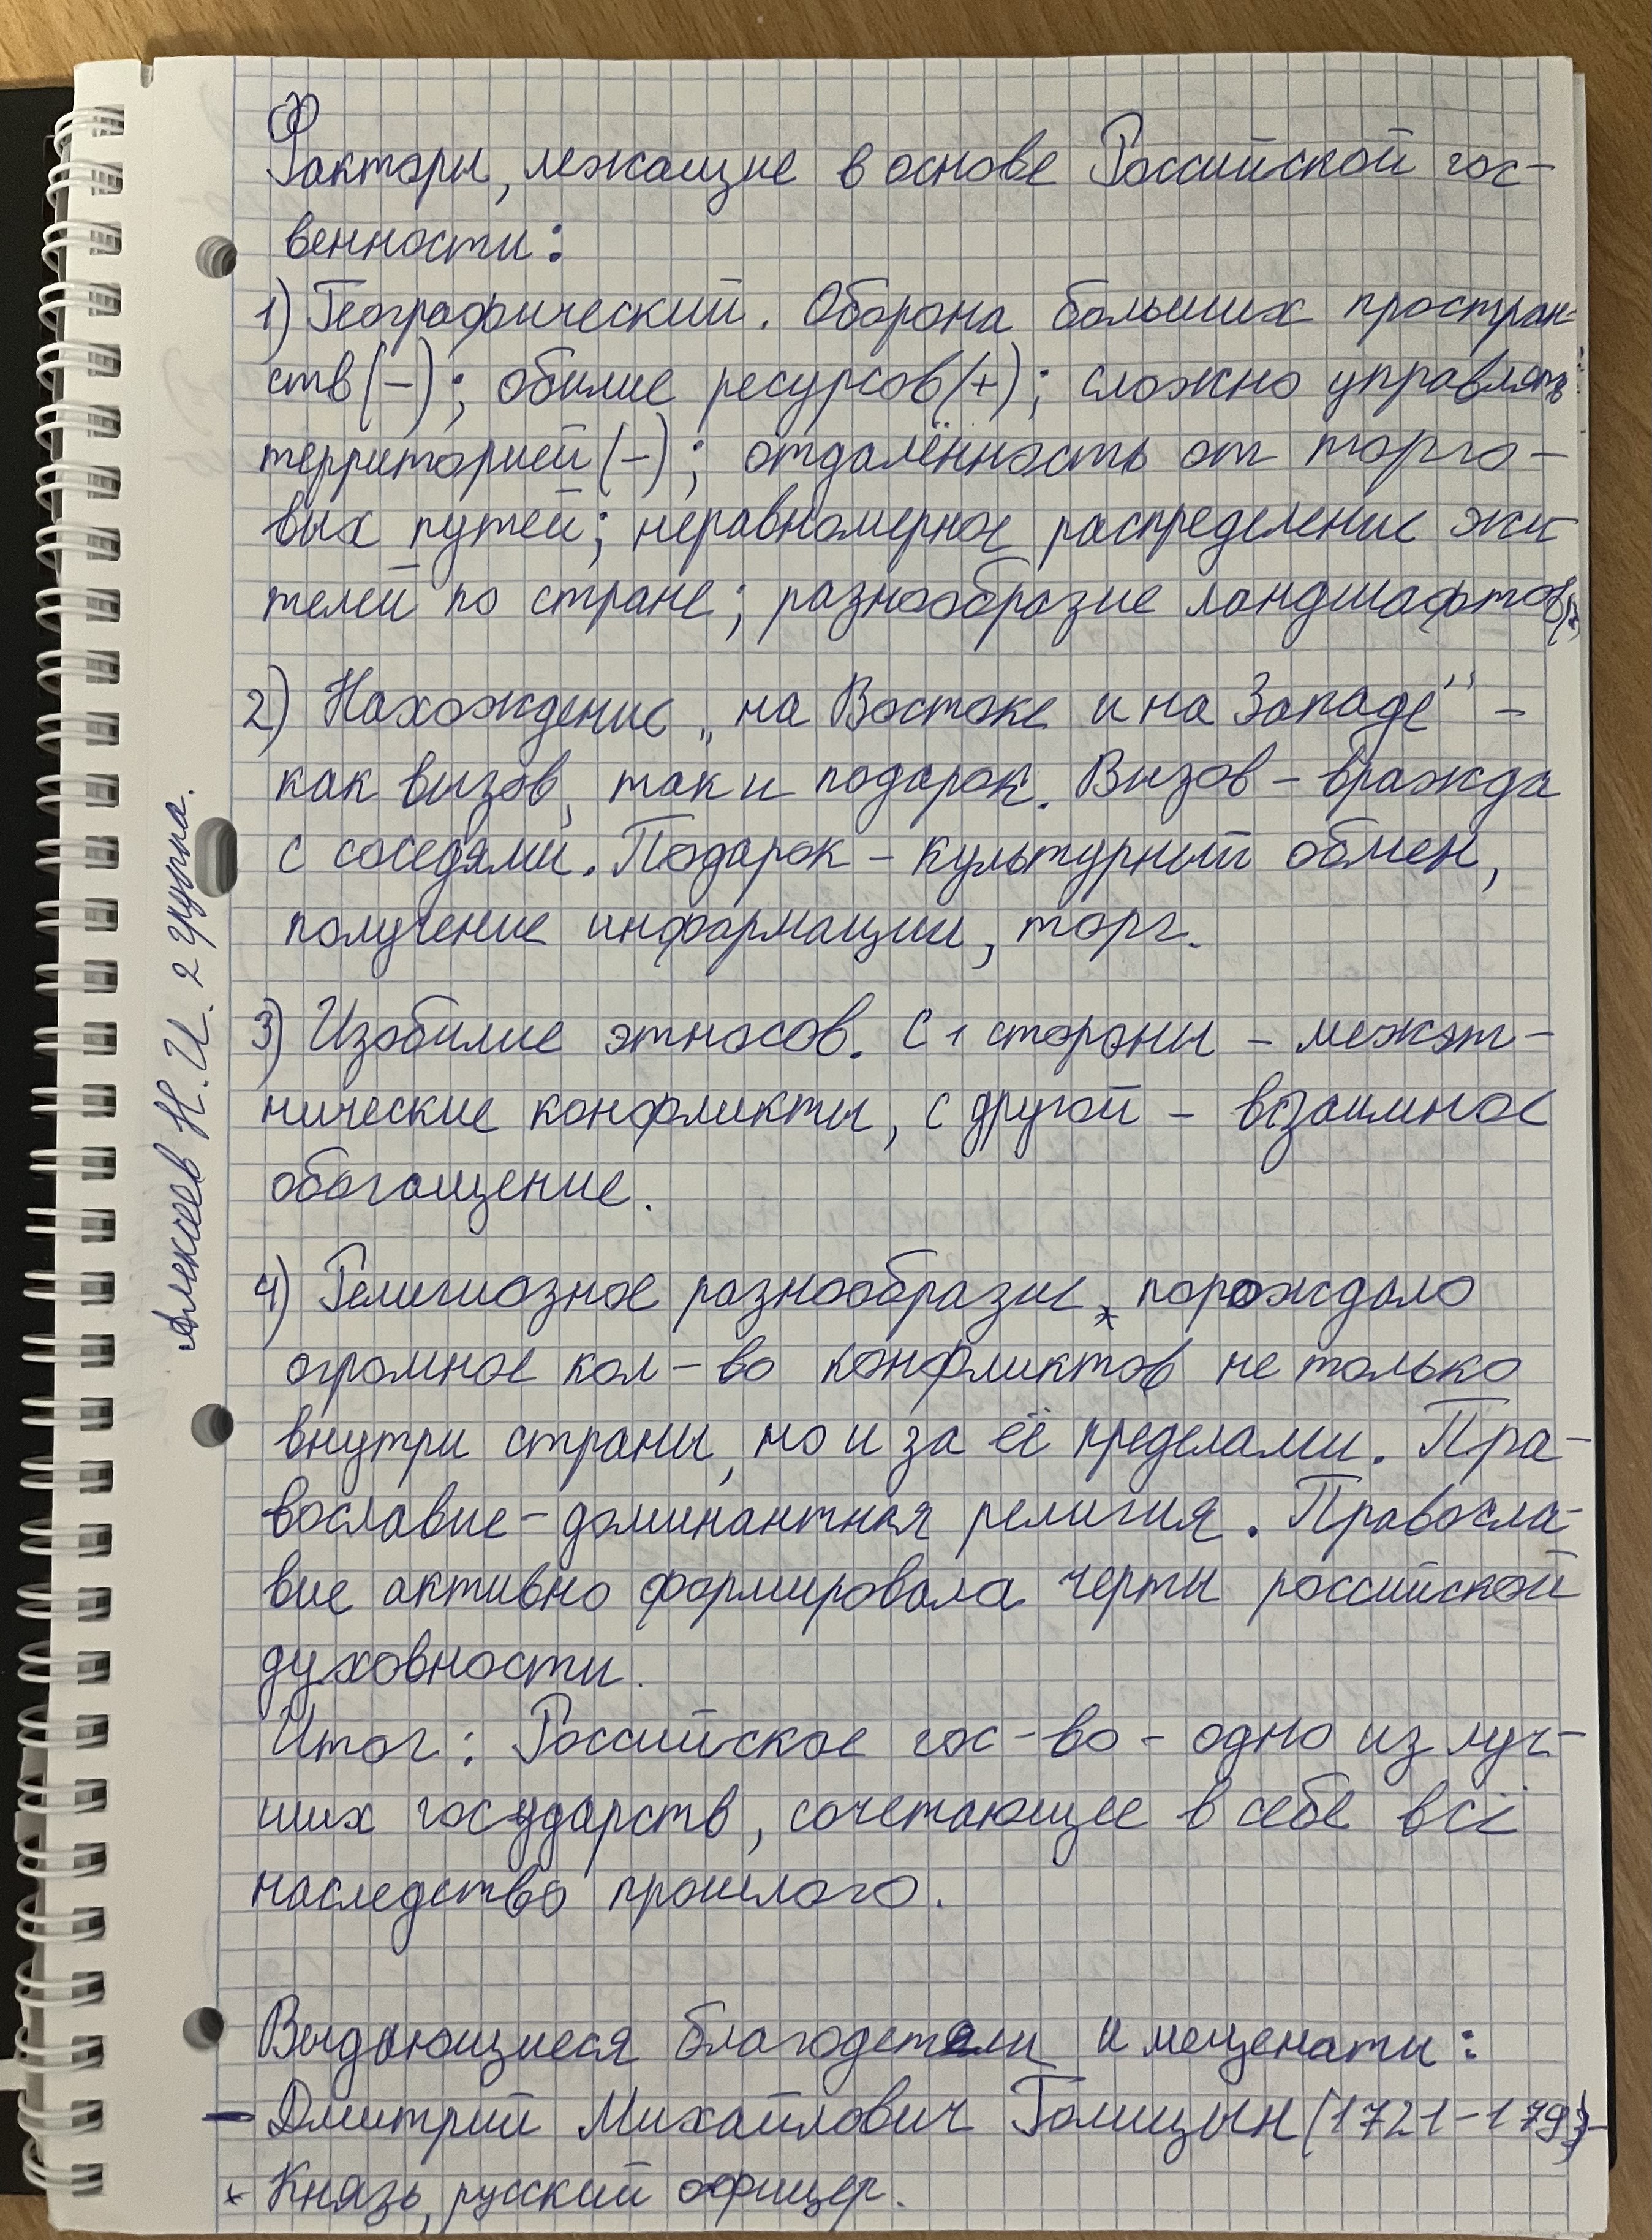 Факторы, лежащие в основе Российской гос-
венности:
1) Географический. Оборона больших простран-
ств(-); обилие ресурсов(+); сложно управлять
территорией(-); отдалённость от торго-
вых путей; неравномерное распределение жи
телей по стране; разнообразие ландшафтов
2) Нахождение „на Востоке и на Западе" -
как вызов, так и подарок. Вызов - вражда
с соседями. Подарок - культурный обмен,
получение информации, торг.
3) Изобилие этносов. С 1 стороны - межэт-
нические конфликты, с другой - взаимное
обогащение.
4) Религиозное разнообразие * порождало
огромное кол-во конфликтов не только
внутри страны, но и за её пределами. Пра-
вославие - доминантная религия. Правосла-
вие активно формировала черты российской
духовности.
Итог: Российское гос-во - одно из луч-
ших государств, сочетающее в себе всё
наследство прошлого.
Выдающиеся благодетели и меценаты:
- Дмитрий Михайлович Голицын (1721-1793)-
* Князь, русский офицер.
Алексеев Н.И. 2 группа.